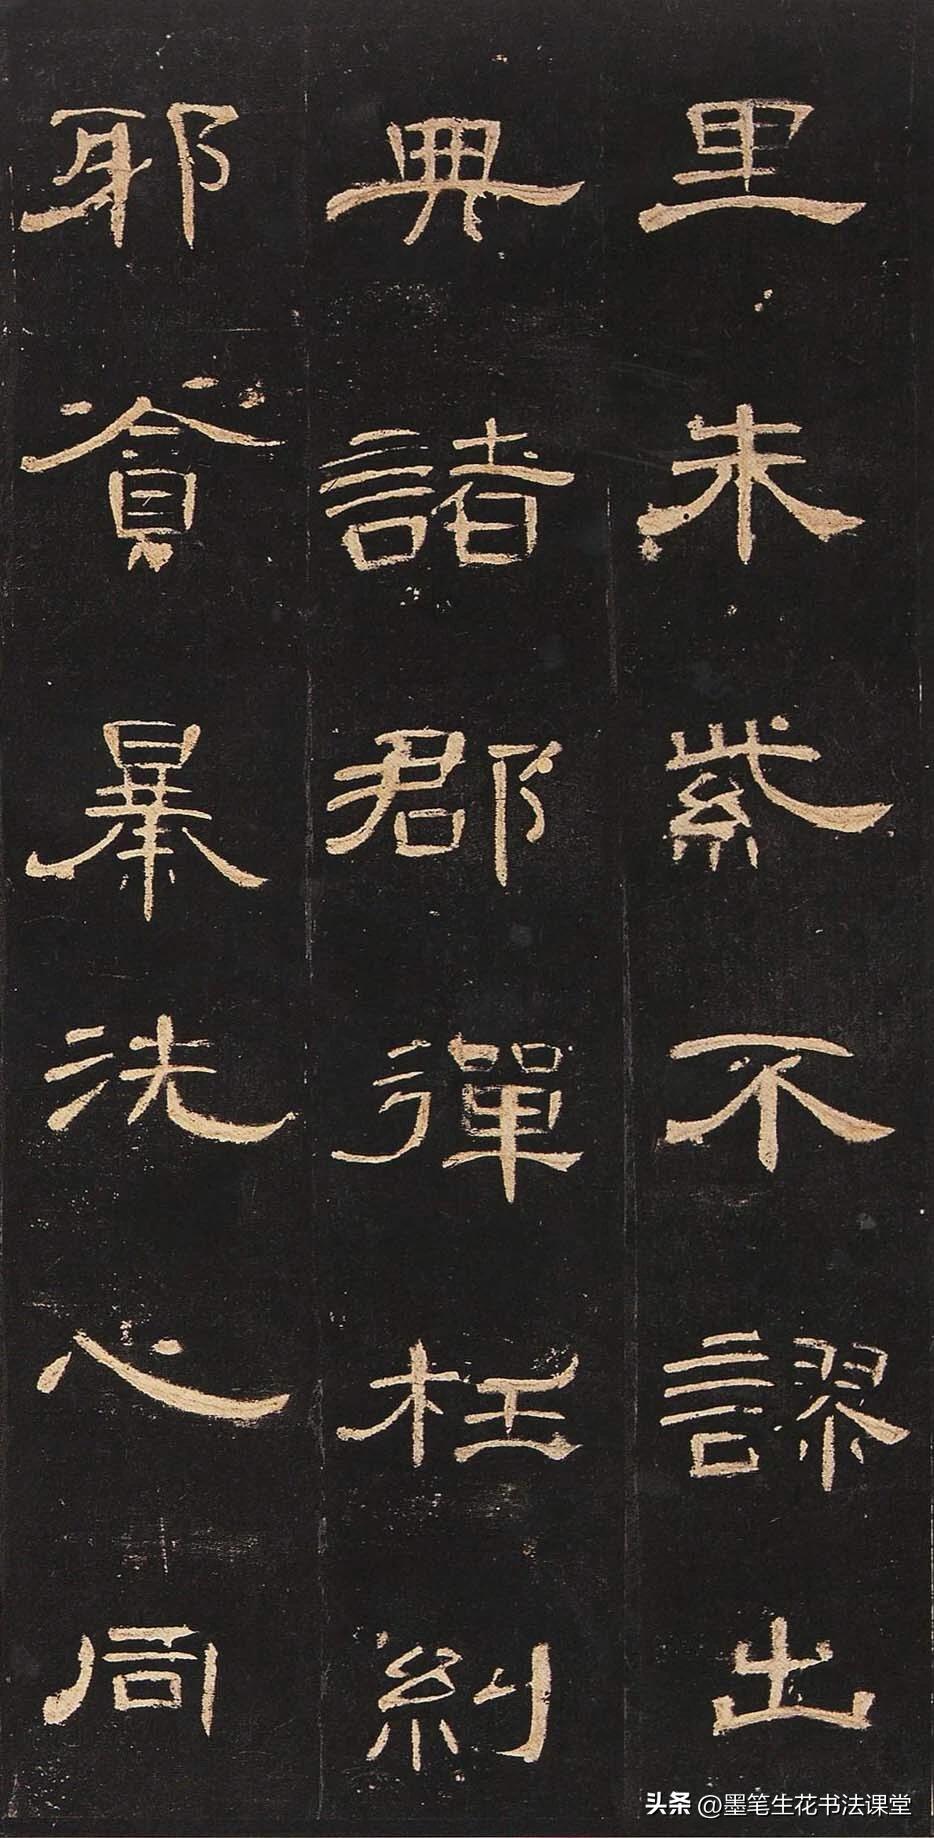 里朱紫不謬出
典諸郡彈枉糾
邪貪暴洗心同
头条 @墨笔生花书法课堂